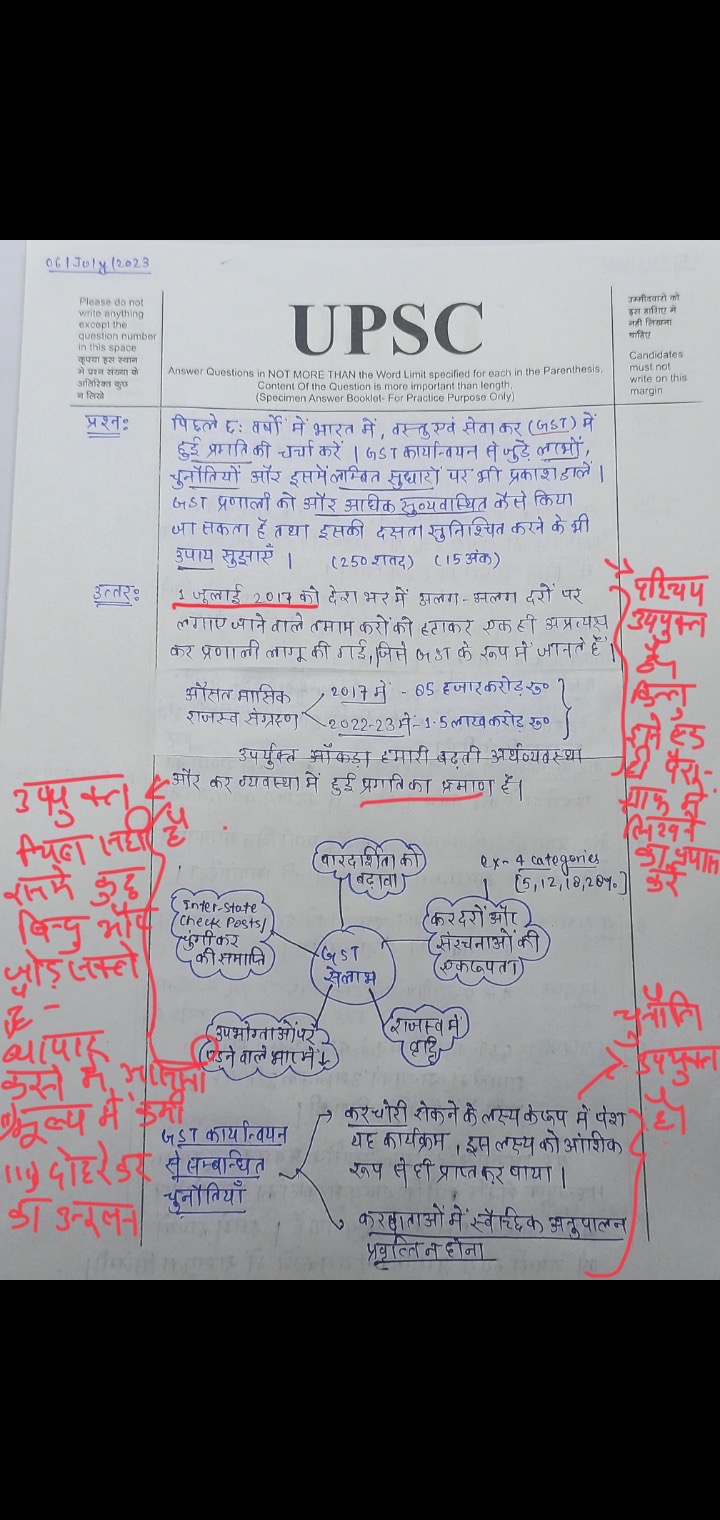 06/July/2023
Please do not
write anything
except the
question number
in this space
कृपया इस स्थान
मे प्रश्न संख्या के
अतिरिक्त कुछ
न लिखे
UPSC
Answer Questions in NOT MORE THAN the Word Limit specified for each in the Parenthesis,
Content Of the Question is more important than length,
(Specimen Answer Booklet- For Practice Purpose Only)
उम्मीदवारो को
इस हाशिए मे
नही लिखना
चाहिए
Candidates
must not
write on this
margin
प्रश्न:
पिछले छः वर्षों में भारत में, वस्तु एवं सेवा कर (GST) में
हुई प्रगति की चर्चा करें । GST कार्यान्वयन से जुड़े लाभों,
चुनौतियों और इसमें लम्बित सुधारों पर भी प्रकाश डालें ।
GST प्रणाली को और अधिक सुव्यवस्थित कैसे किया
जा सकता है तथा इसकी दक्षता सुनिश्चित करने के भी
उपाय सुझाएँ । (250 शब्द) (15 अंक)
उत्तर:
1 जुलाई 2017 को देश भर में अलग-अलग दरों पर
लगाए जाने वाले तमाम करों को हटाकर एक ही अप्रत्यक्ष
कर प्रणाली लागू की गई, जिसे GST के रूप में जानते हैं ।
औसत मासिक
राजस्व संग्रहण
2017 में - 85 हजार करोड़ रु०
2022-23 में - 1.5 लाख करोड़ रु०
उपर्युक्त आँकड़ा हमारी बढ़ती अर्थव्यवस्था
और कर व्यवस्था में हुई प्रगति का प्रमाण है।
परिचय
उपयुक्त
है।
किन्तु
इसे
ही पैरा-
ग्राफ में
लिखने
का प्रयास
करें
पारदर्शिता को
बढ़ावा
ex- 4 categories
[5,12,18,28%]
Inter-state
Check Posts/
चुंगी कर
की समाप्ति
GST
से लाभ
कर दरों और
संरचनाओं की
एकरूपता
उपभोग्ताओं पर
पड़ने वाले भार में ↓
राजस्व में
वृद्धि
उपयुक्त
है
इसमे कुछ
बिन्दु और
जोड़ सकते
है -
व्यापार
करने में
मूल्य में कमी
दोहरे कर
का उन्मूलन
GST कार्यान्वयन
से सम्बन्धित
चुनौतियाँ
कर चोरी रोकने के लक्ष्य के रूप में पेश
यह कार्यक्रम, इस लक्ष्य को आंशिक
रूप से ही प्राप्त कर पाया ।
करदाताओं में स्वैच्छिक अनुपालन
प्रवृत्ति न होना
चुनौति
उपयुक्त
है।